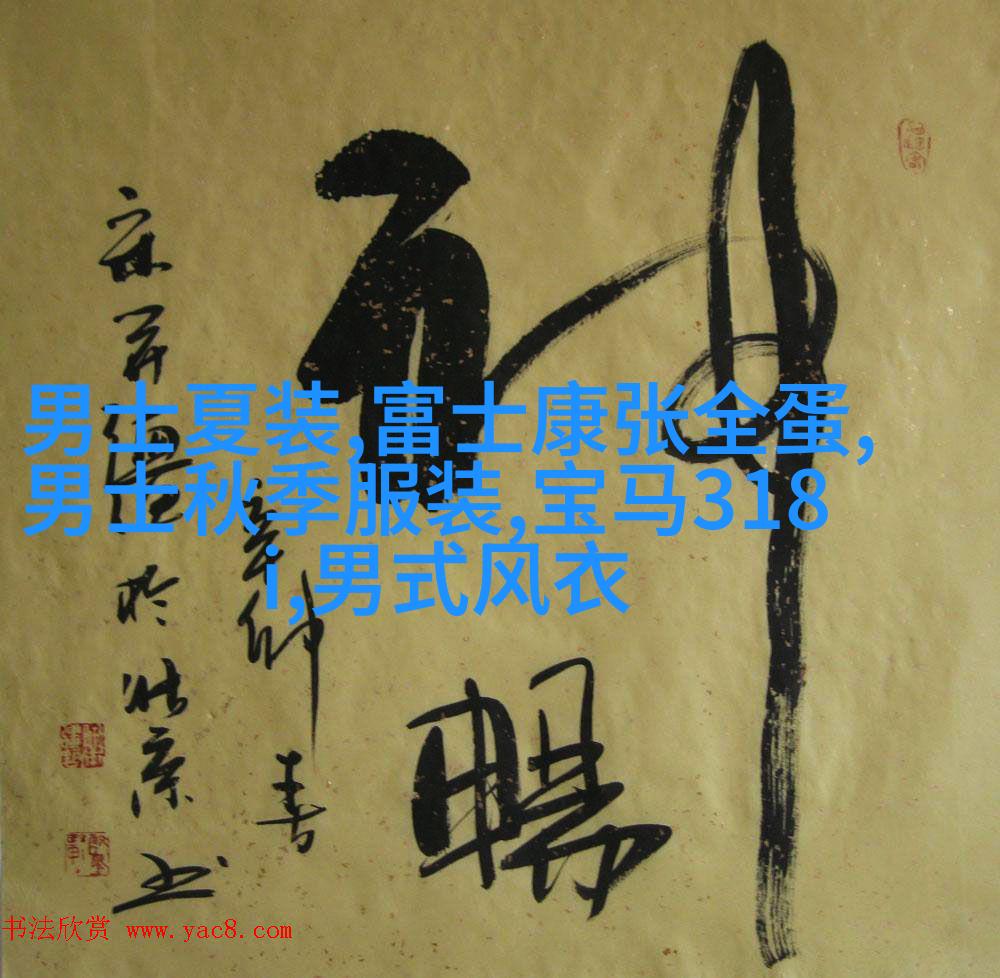 神
暢
辛卯春
於北京书
男士夏装,富士康张全蛋,
男士秋季服装,宝马318
i,男式风衣
书法欣赏 www.yac8.com